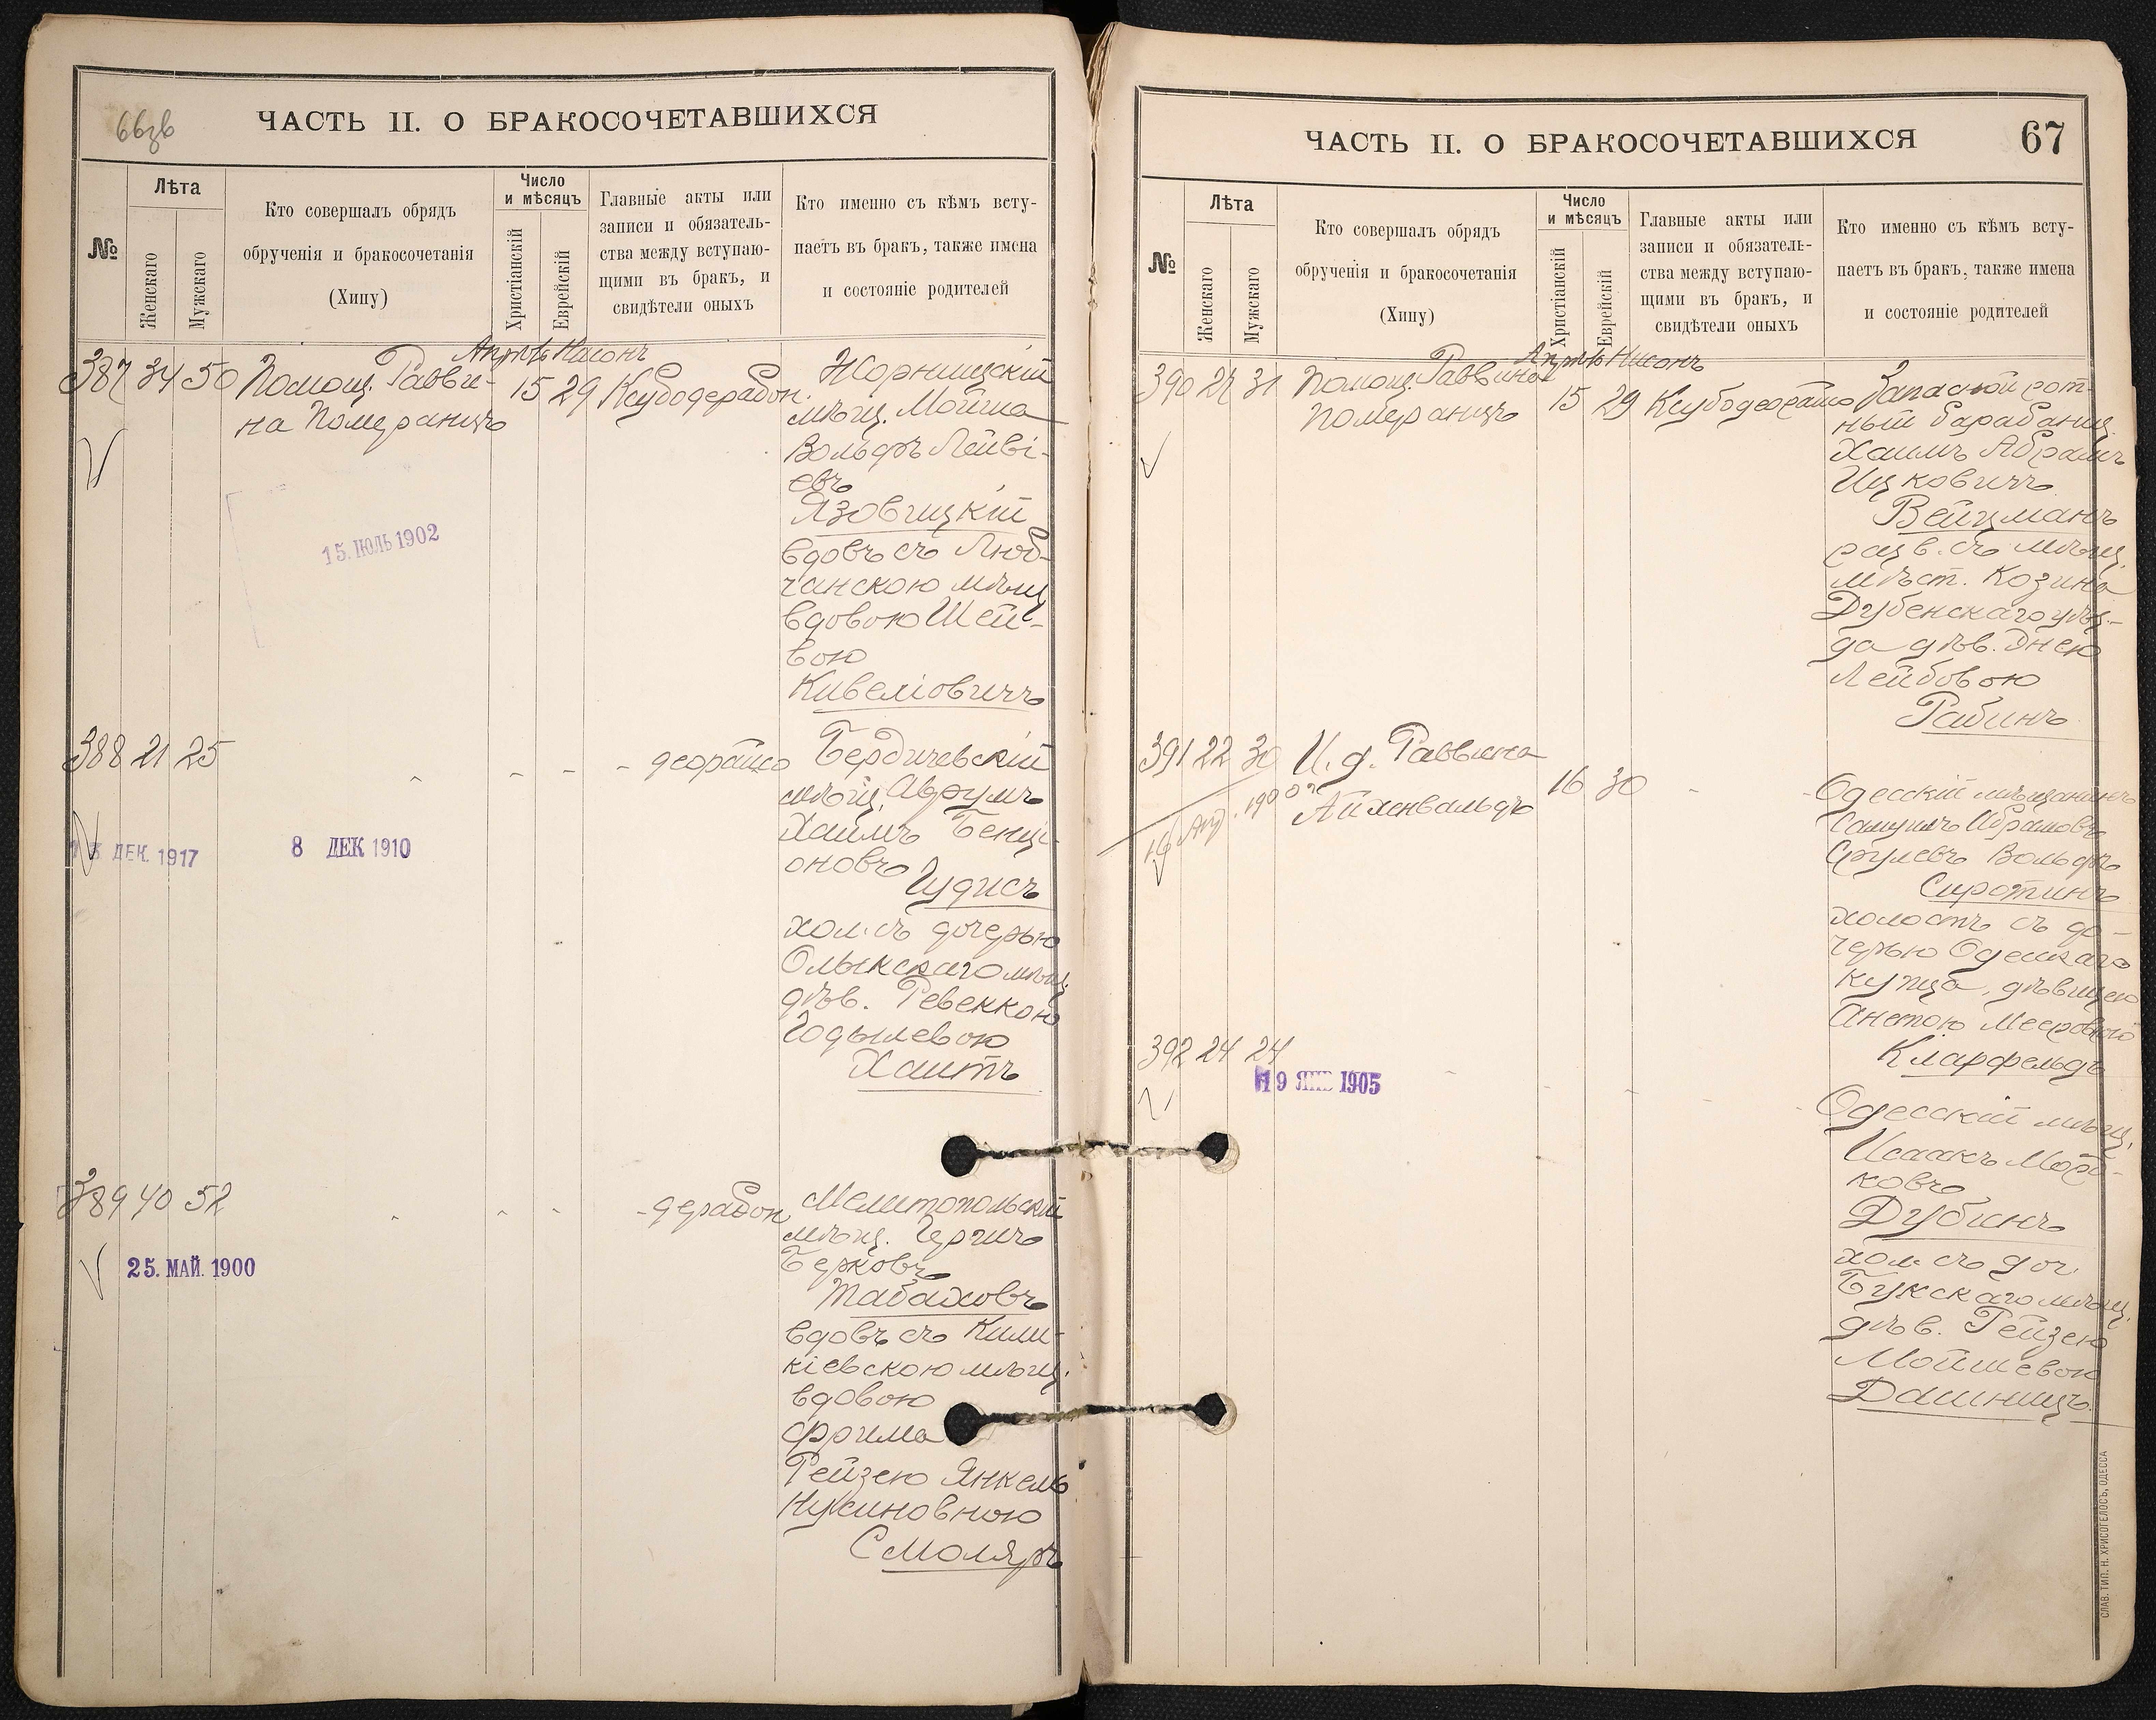 66зв
ЧАСТЬ II. О БРАКОСОЧЕТАВШИХСЯ
№
Лѣта
Женскаго
Мужскаго
Кто совершалъ обрядъ
обрученія и бракосочетанія
(Хипу)
Число
и мѣсяцъ
Христіанскій
Еврейскій
Главные акты или
записи и обязатель-
ства между вступаю-
щими въ бракъ, и
свидѣтели оныхъ
Кто именно съ кѣмъ всту-
паетъ въ бракъ, также имена
и состояніе родителей
Апрѣль Нисонъ
387 34 50 Помощ. Равви-
на Померанцъ
15 29 Ксубодерабон.
Жорнищскій
мѣщ. Мойша
Вольфъ Лейві-
евъ
Язовицкій
вдовъ съ Люб-
чанскою мѣщ
вдовою Шей-
вою
Кивеліовичъ
15. ІЮЛЬ 1902
388 21 25 - - - - деорайсо
Бердичевскій
мѣщ. Аврумъ
Хаимъ Бенці-
оновъ Гудисъ
хол. съ дочерью
Олыкскаго мѣщ.
дѣв. Ревеккою
Годылевою
Хаитъ
13 ДЕК. 1917
8 ДЕК 1910
389 40 52 - - - - дерабон.
Мелитопольскій
мѣщ. Гершъ
Берковъ
Табаховъ
вдовъ съ Кили-
кіевскою мѣщ.
вдовою
Фрима
Рейзею Янкель
Нусиновною
Смоляръ
25. МАЙ. 1900
ЧАСТЬ II. О БРАКОСОЧЕТАВШИХСЯ
67
№
Лѣта
Женскаго
Мужскаго
Кто совершалъ обрядъ
обрученія и бракосочетанія
(Хипу)
Число
и мѣсяцъ
Христіанскій
Еврейскій
Главные акты или
записи и обязатель-
ства между вступаю-
щими въ бракъ, и
свидѣтели оныхъ
Кто именно съ кѣмъ всту-
паетъ въ бракъ, также имена
и состояніе родителей
Апрѣль Нисонъ
390 27 31 Помощ. Раввина
Померанцъ
15 29 Ксубодеорайсо
Запасной рот-
ный барабанщ.
Хаимъ Абрамъ
Ицковичъ
Вейцманъ
разв. съ мѣщ.
мѣст. Козина
Дубенскаго уѣз-
да дѣв. Энею
Лейбовою
Рабинъ
391 22 30 И. д. Раввина
Айхенвальдъ
16 30 - -
Одесскій мѣщанинъ
Самуилъ Абрамовъ
Срулевъ Вольфъ
Сиротинъ
холостъ съ до-
черью Одесскаго
купца, дѣвицею
Анетою Мееровною
Кларфельдъ
16 Апр. 1900 г
392 24 24 - - - - -
Одесскій мѣщ.
Исаакъ Морд-
ковъ
Дубинъ
хол. съ доч.
Букскаго мѣщ.
дѣв. Рейзею
Мойшевою
Дашницъ.
19 ЯНВ 1905
СЛАВ. ТИП. Н. ХРИСОГЕЛОСЪ, ОДЕССА